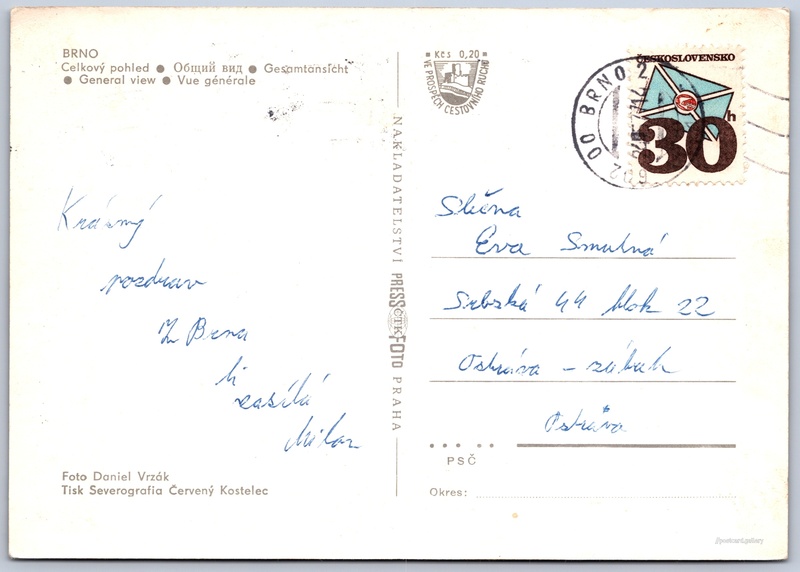 BRNO
Celkový pohled ● Общий вид ● Gesamtansicht
● General view ● Vue générale
Krásný
pozdrav
Z Brna
ti
zasílá
Milan
Foto Daniel Vrzák
Tisk Severografia Červený Kostelec
NAKLADATELSTVÍ PRESSFOTO PRAHA
ČTK
Kčs 0,20
VE PROSPĚCH CESTOVNÍHO RUCHU
OO BRNO 2
602
ČESKOSLOVENSKO
30h
Slečna
Eva Smutná
Srbská 44 blok 22
Ostrava - zábřeh
Ostrava
PSČ
Okres: